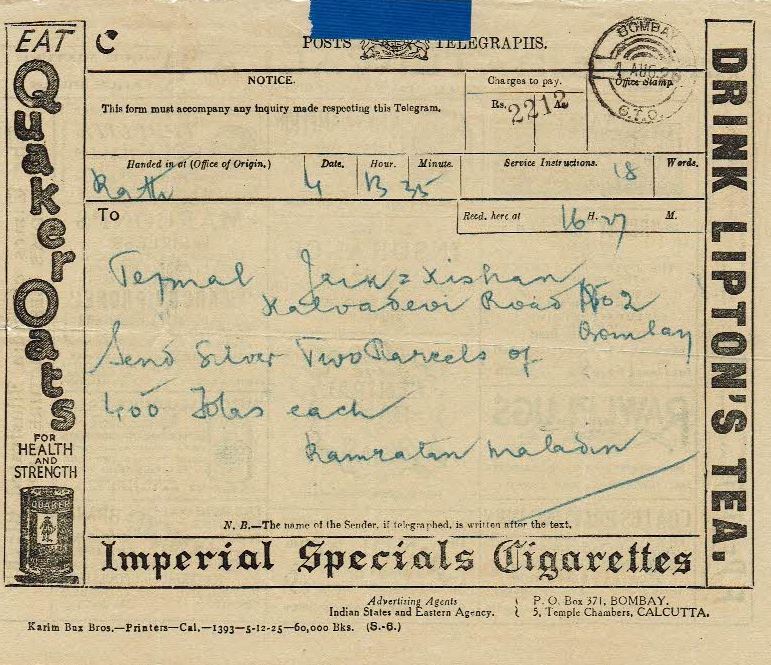 EAT
Quaker Oats
FOR
HEALTH
AND
STRENGTH
QUAKER
C
POSTS TELEGRAPHS.
NOTICE.
This form must accompany any inquiry made respecting this Telegram.
Charges to pay.
Rs. As
2212
BOMBAY
AUG
Office Stamp
G.T.O.
Handed in at (Office of Origin.) Date. Hour. Minute. Service Instructions. Words.
Rath 4 13 35 18
To
Recd. here at 16 H. 27 M.
Tejmal Jaik = Kishan
Kalvadevi Road No 2
Bombay
Send Silver Two Parcels of
400 Tolas each
Ramratan Maladin
N. B.—The name of the Sender, if telegraphed, is written after the text.
Imperial Specials Cigarettes
DRINK LIPTON'S TEA.
Advertising Agents
Indian States and Eastern Agency.
P. O. Box 371, BOMBAY.
5, Temple Chambers, CALCUTTA.
Karim Bux Bros.—Printers—Cal.—1393—5-12-25—60,000 Bks. (S.-6.)